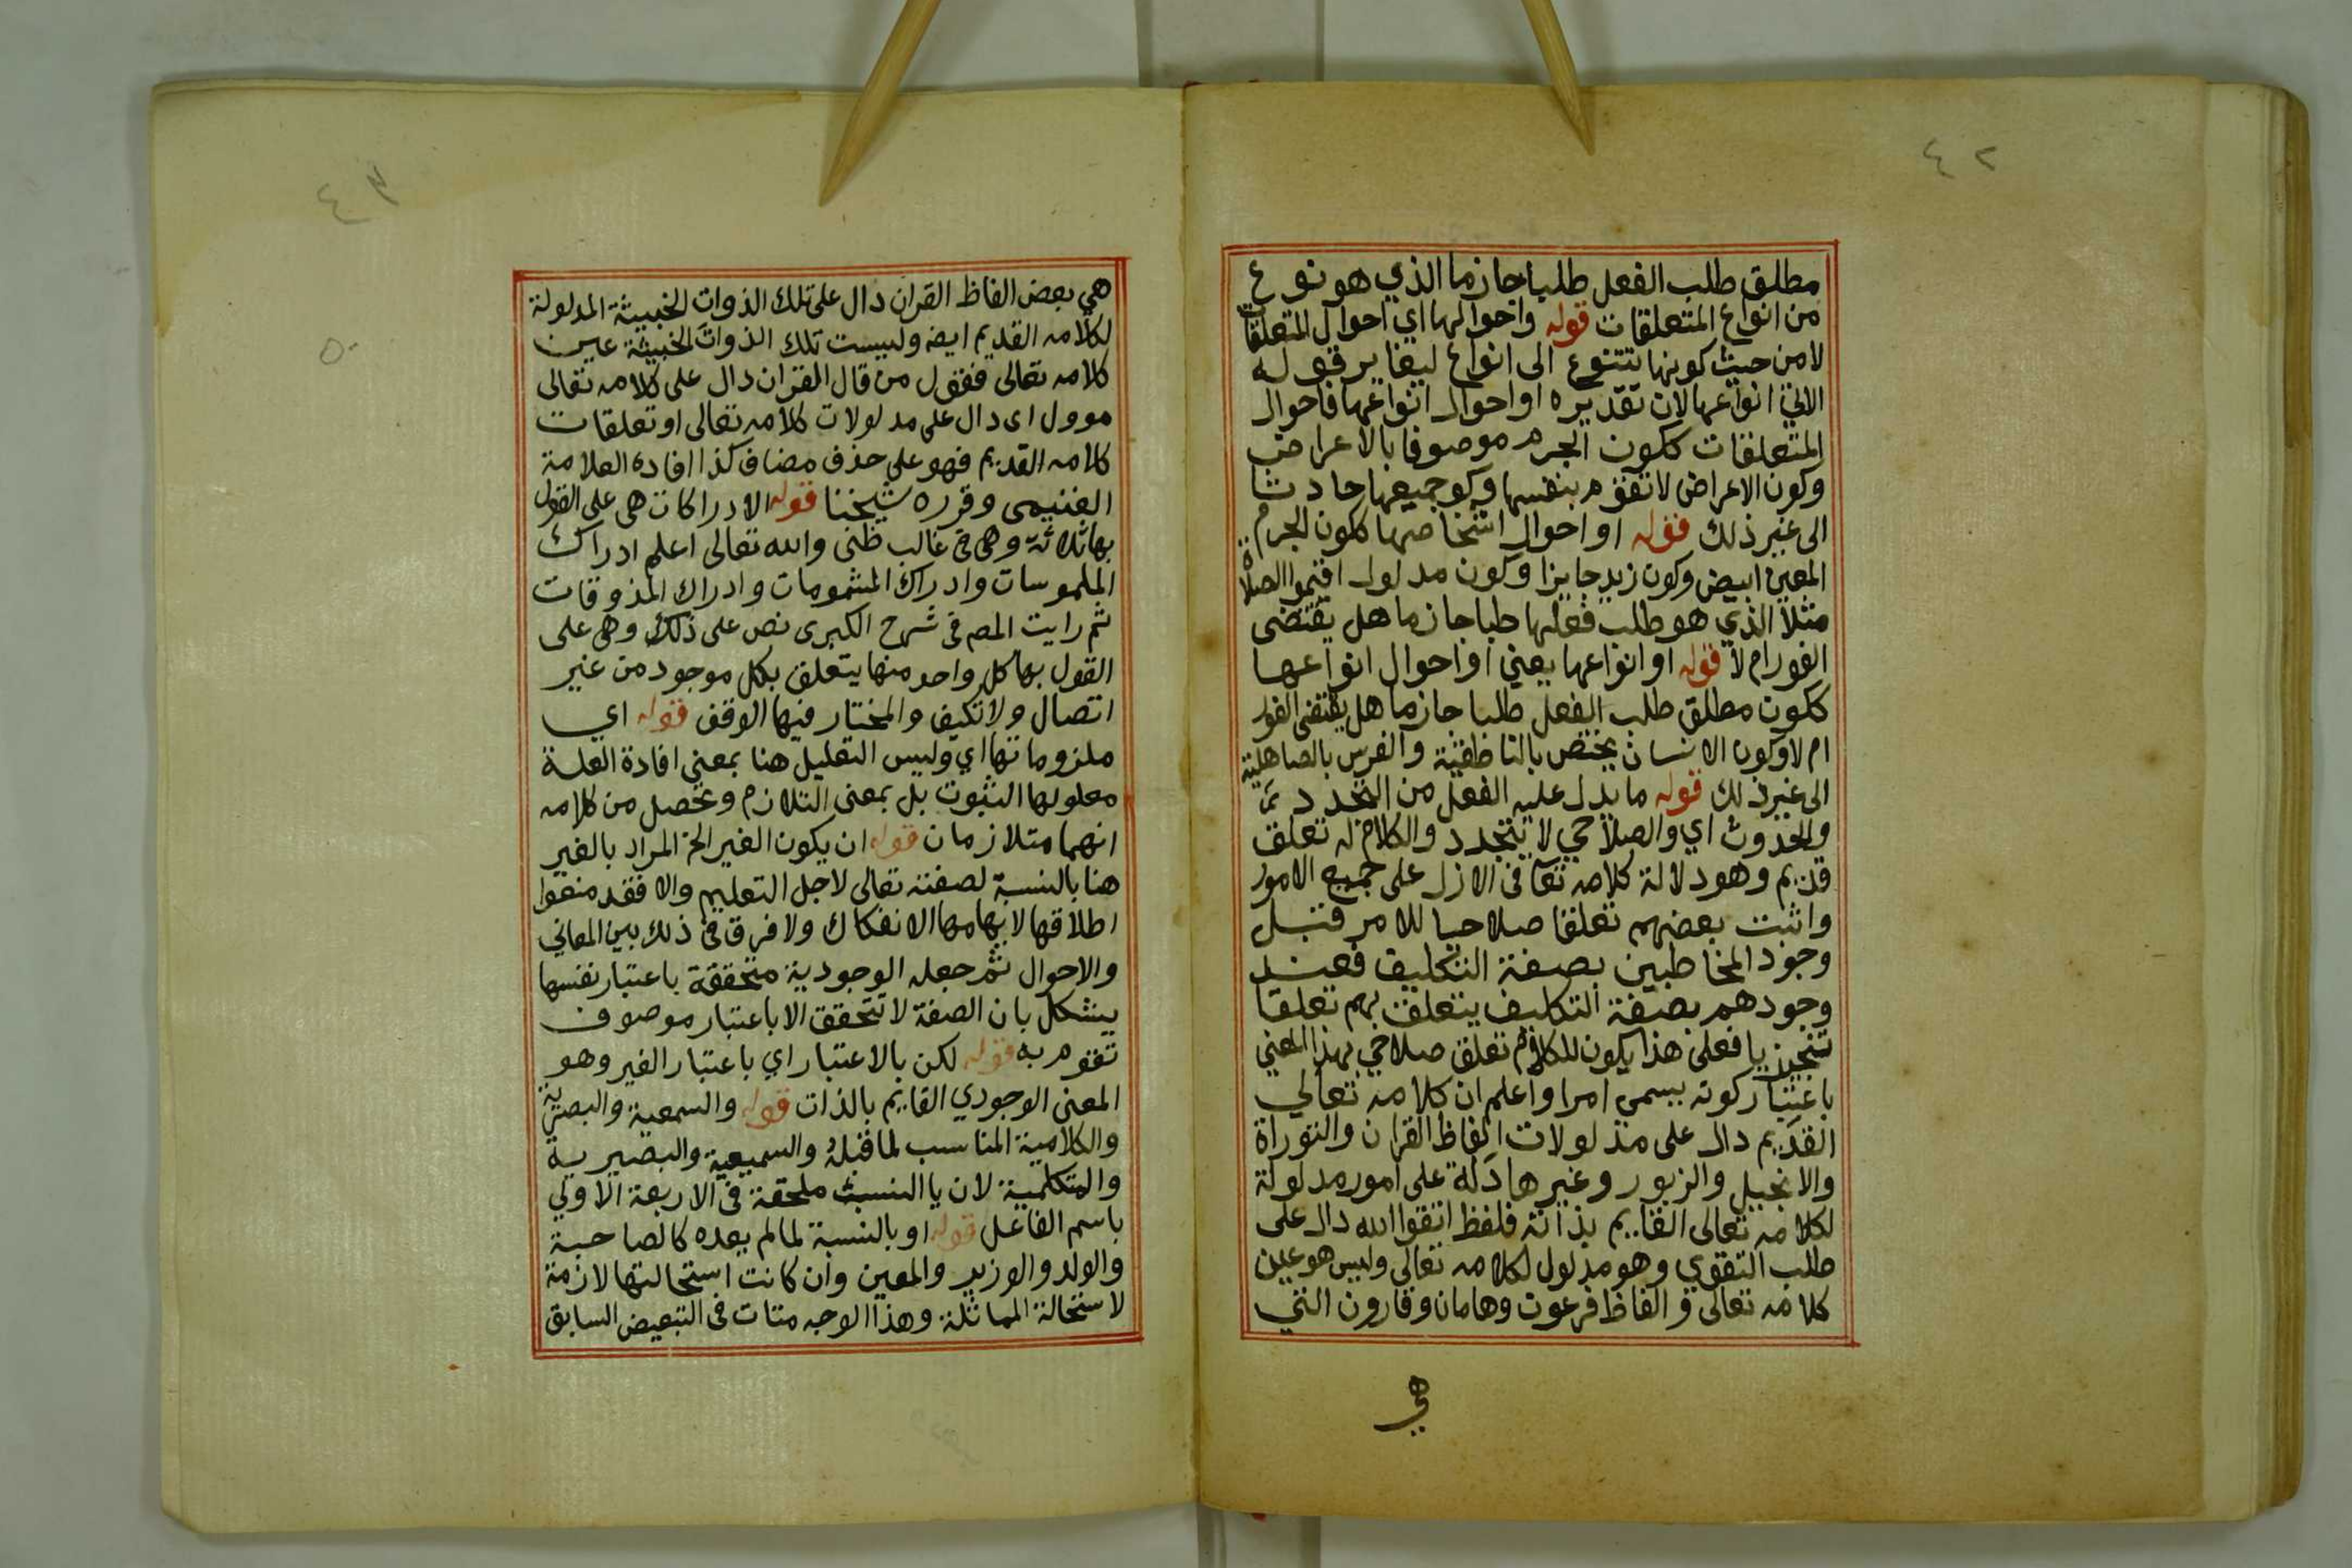 ٤٢
مطلق طلب الفعل طلبا جازما الذي هو نوع
من انواع المتعلقات قوله واحوالها اي احوال المتعلقات
لا من حيث كونها تتنوع الى انواع ليغاير قوله
الاتي انواعها لان تقديره او احوال انواعها فاحوال
المتعلقات ككون الجرم موصوفا بالاعراض
وكون الاعراض لا تقوم بنفسها وكو جميعها حادثا
الى غير ذلك قوله او احوال اشخاصها ككون الجرم
المعين ابيض وكون زيد جايزا وكون مدلول اقيموا الصلاة
مثلا الذي هو طلب فعلها طلبا جازما هل يقتضى
الفور ام لا قوله او انواعها يعني او احوال انواعها
ككون مطلق طلب الفعل طلبا جازما هل يقتضى الفور
ام لا وكون الانسان يختص بالناطقية والفرس بالصاهلية
الى غير ذلك قوله ما يدل عليه الفعل من التجدد
والحدوث اي والصلاحي لا يتجدد والكلام له تعلق
قديم وهو دلالة كلامه تعا فى الازل على جميع الامور
واثبت بعضهم تعلقا صلاحيا للامر قبل
وجود المخاطبين بصفة التكليف فعند
وجودهم بصفة التكليف يتعلق بهم تعلقا
تنجيزيا فعلى هذا يكون للكلام تعلق صلاحي بهذا المعني
باعتبار كونه يسمى امرا واعلم ان كلامه تعالي
القديم دال على مدلولات الفاظ القران والتوراة
والانجيل والزبور وغيرها دالة على امور مدلولة
لكلامه تعالى القايم بذاته فلفظ اتقوا الله دال على
طلب التقوي وهو مدلول لكلامه تعالى وليس هو عين
كلامه تعالى و الفاظ فرعون وهامان وقارون التي
هي
٤٣
٥٠
هي بعض الفاظ القران دال على تلك الذوات الخبيثة المدلولة
لكلامه القديم ايضه وليست تلك الذوات الخبيثة عين
كلامه تعالى فقول من قال القران دال على كلامه تعالى
موول اى دال على مدلولات كلامه تعالى او تعلقات
كلامه القديم فهو على حذف مضاف كذا افاده العلامة
الغنيمى وقرره شيخنا قوله الادراكات هى على القول
بها ثلاثة وهى فى غالب ظنى والله تعالى اعلم ادراك
الملموسات وادراك المشمومات وادراك المذوقات
ثم رايت المص فى شرح الكبرى نص على ذلك وهى على
القول بها كل واحد منها يتعلق بكل موجود من غير
اتصال ولا تكيف والمختار فيها الوقف قوله اي
ملزوماتها اي وليس التعليل هنا بمعنى افادة العلة
معلولها الثبوت بل بمعنى التلازم وتحصل من كلامه
انهما متلازمان قوله ان يكون الغير الخ المراد بالغير
هنا بالنسبة لصفته تعالى لاجل التعليم والا فقد منعوا
اطلاقها لايهامها الانفكاك ولا فرق فى ذلك بين المعاني
والاحوال ثم جعله الوجودية متحققة باعتبار نفسها
يشكل بان الصفة لا تتحقق الا باعتبار موصوف
تقوم به قوله لكن بالاعتبار اي باعتبار الغير وهو
المعنى الوجودي القايم بالذات قوله والسمعية والبصرية
والكلامية المناسب لما قبله والسميعية والبصيرية
والمتكلمية لان يا النسبة ملحقة فى الاربعة الاولي
باسم الفاعل قوله او بالنسبة لما لم يعده كالصاحبة
والولد والوزير والمعين وان كانت استحالتها لازمة
لاستحالة المماثلة وهذا الوجه متات فى التبعيض السابق